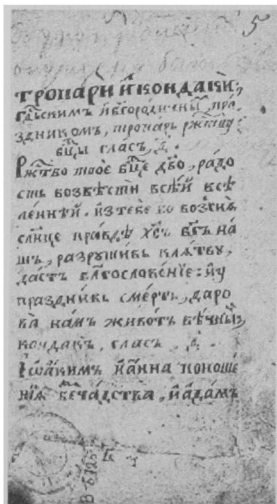 5
тропари и҆ кондаки,
гдⷭ҇ьскимъ и҆ бг҃ородичнымъ пра
здникомъ, тропарь ржⷭ҇тву
бц҃ы гласъ, д҃.
Ржⷭ҇тво твое бц҃е дв҃о, радо
сть возвѣсти всей всѣ
леннѣй. изтебе бо возсия
слн҃це правдѣ хс҃ъ бг҃ъ на
шъ, разрꙋшивь клятвꙋ,
дастъ бл҃гословение: и҆ ꙋ
праздникь смерть, даро
ва намъ животъ вѣчныи,
кондакъ, гласъ д҃.
Іѡакимъ и҆ анна поноше
ния безчадства, и҆ адамъ